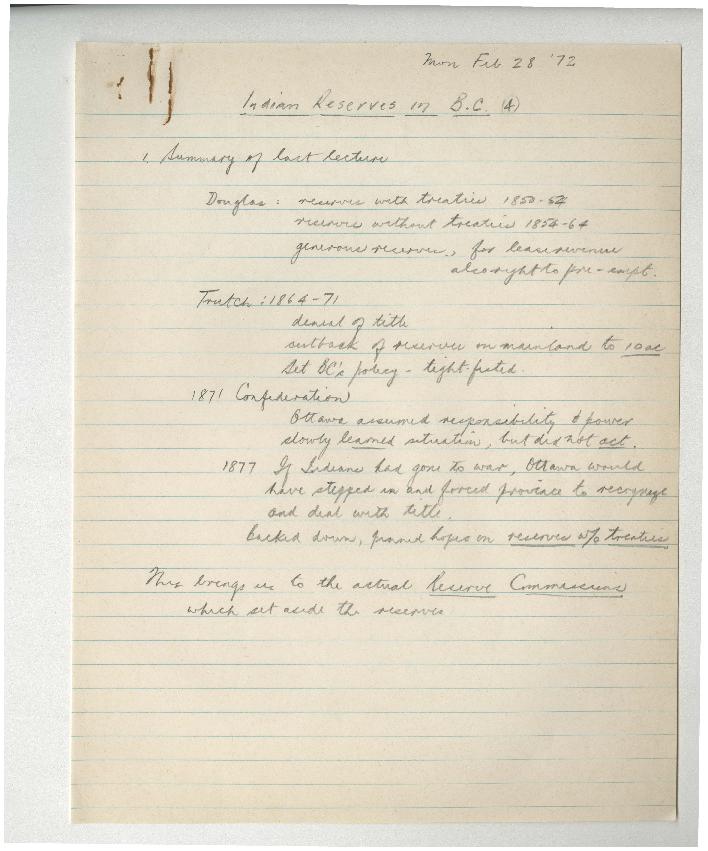 Mon Feb 28 '72
Indian Reserves in B.C. (4)
1. Summary of last lecture
Douglas : reserves with treaties 1850-54
reserves without treaties 1854-64
generous reserves, for lease revenue
also right to pre-empt.
Trutch : 1864-71
denial of title
cutback of reserves on mainland to 10 ac
Set BC's policy - tight-fisted.
1871 Confederation
Ottawa assumed responsibility & power
slowly learned situation, but did not act.
1877 If Indians had gone to war, Ottawa would
have stepped in and forced province to recognize
and deal with title.
Backed down, pinned hopes on reserves w/o treaties
This brings us to the actual Reserve Commissions
which set aside the reserves